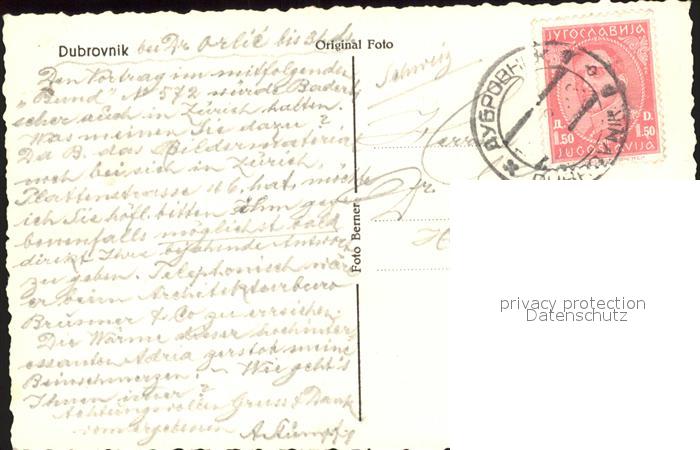 Dubrovnik bei Dr. Orlić bis 31. ds
Original Foto
Den Vortrag im mitfolgenden
"Bund" No 572 würde Badert-
scher auch in Zürich halten.
Was meinen Sie dazu?
Da B. das Bildermaterial
noch bei sich in Zürich,
Plattenstrasse 46, hat, möchte
ich Sie höfl. bitten, ihm ge
benenfalls möglichst bald
direkt Ihre bejahende Antwort
zu geben. Telephonisch wäre
er beim Architekturbureau
Brunner & Co zu erreichen.
Die Wärme dieser hochinter-
essanten Adria meine
Beinschmerzen. - Wie geht's
Ihnen immer?
Achtungsvollen Gruss & Dank
vom ergebenen
A. Kümpfig
Foto Berner
Schweiz
Herrn
Dr.
ЈУГОСЛАВИЈА
Д. D.
1.50 1.50
JUGOSLAVIJA
ДУБРОВНИК
DUBROVNIK
privacy protection
Datenschutz